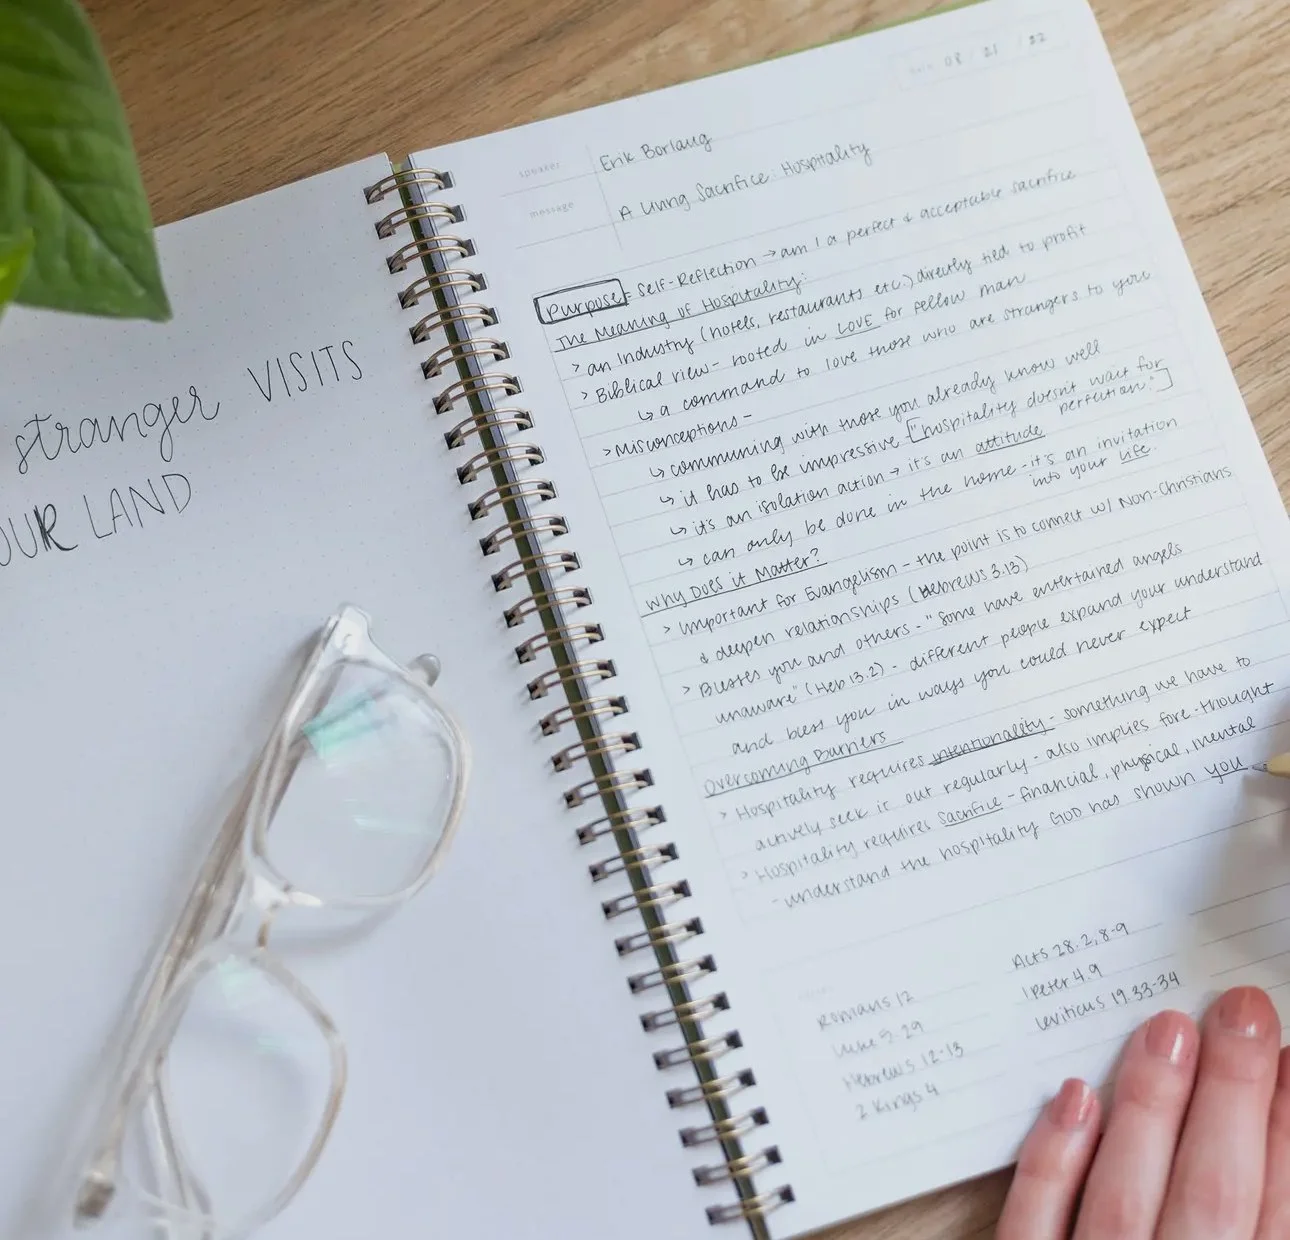 stranger VISITS
OUR LAND
Date 08 / 21 / 22
speaker Erik Borlaug
message A Living Sacrifice: Hospitality
Purpose = Self-Reflection → am I a perfect & acceptable sacrifice
The Meaning of Hospitality:
> an Industry (hotels, restaurants etc.) directly tied to profit
> Biblical view - rooted in LOVE for fellow man
↳ a command to love those who are strangers to you
> Misconceptions -
↳ communing with those you already know well
↳ it has to be impressive - ["hospitality doesn't wait for perfection."]
↳ it's an isolation action → it's an attitude
↳ can only be done in the home - it's an invitation into your life.
Why Does it Matter?
> Important for Evangelism - the point is to connect w/ Non-Christians
& deepen relationships (Hebrews 3.13)
> Blesses you and others - "some have entertained angels
unaware" (Heb 13.2) - different people expand your understand
and bless you in ways you could never expect
Overcoming Barriers
> Hospitality requires intentionality - something we have to
actively seek it out regularly - also implies fore-thought
> Hospitality requires sacrifice - financial, physical, mental
- understand the hospitality GOD has shown you
Romans 12
29
Hebrews 12-13
2 Kings 4
Acts 28.2, 8-9
1 Peter 4.9
Leviticus 19.33-34